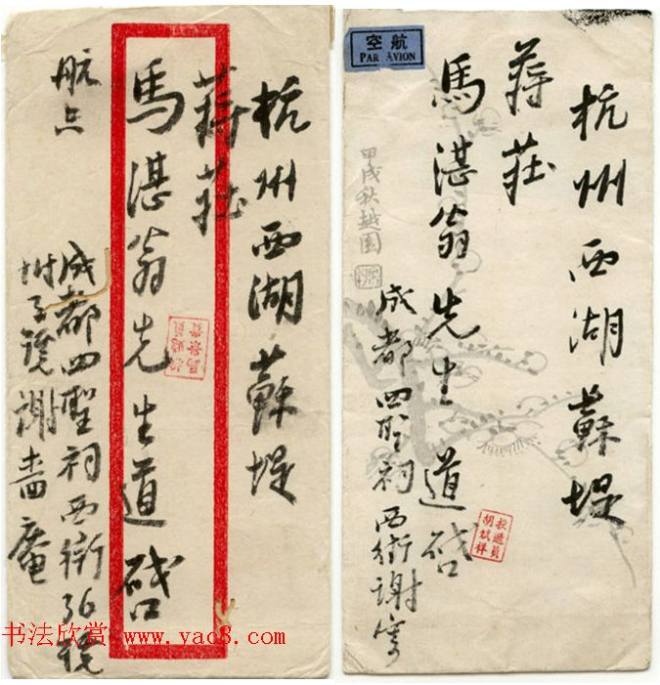 杭州西湖蘇堤
蔣莊
馬湛翁先生道啓
航
成都四聖祠西街36號
附子號謝嗇庵
书法欣赏 www.yac8.com
航空
PAR AVION
杭州西湖蘇堤
蔣莊
馬湛翁先生道啓
成都四聖祠西街謝寄
甲戌秋越園
投遞員
胡斌祥